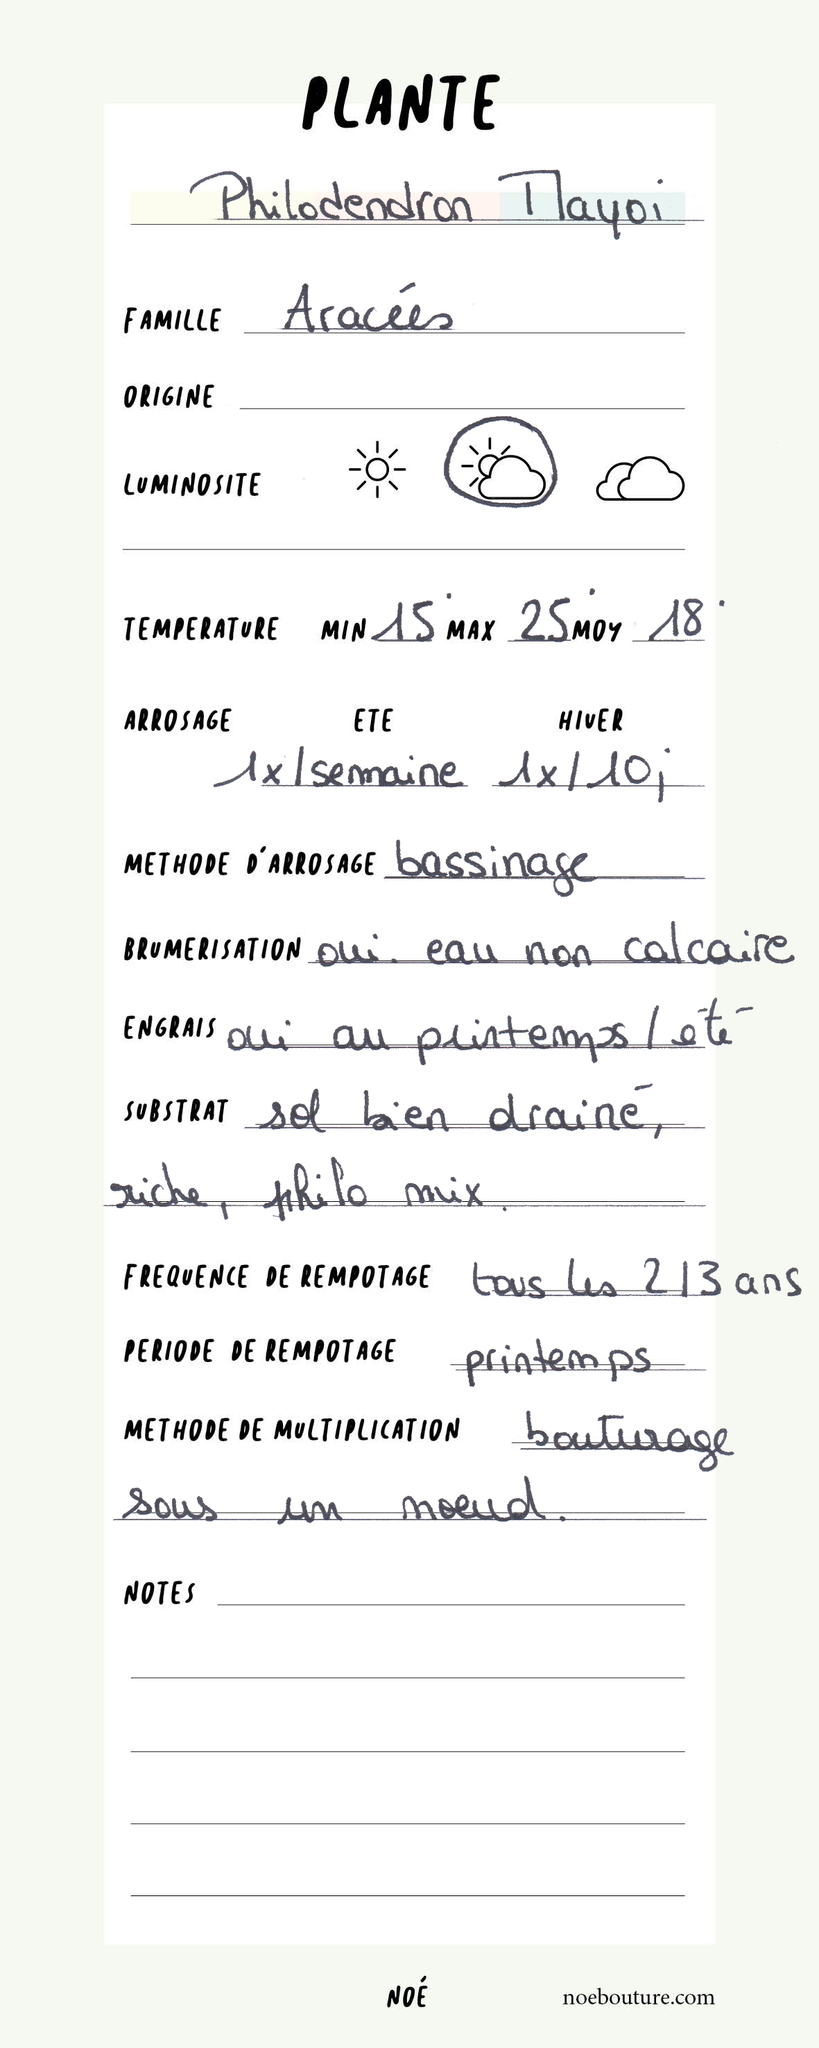 PLANTE
Philodendron Mayoi
FAMILLE Aracées
ORIGINE
LUMINOSITE
TEMPERATURE MIN 15° MAX 25° MOY 18°
ARROSAGE ETE HIVER
1x/semaine 1x/10j
METHODE D'ARROSAGE bassinage
BRUMERISATION oui. eau non calcaire
ENGRAIS oui au printemps/été
SUBSTRAT sol bien drainé,
riche, philo mix.
FREQUENCE DE REMPOTAGE tous les 2/3 ans
PERIODE DE REMPOTAGE printemps
METHODE DE MULTIPLICATION bouturage
sous un noeud.
NOTES
NOÉ noebouture.com